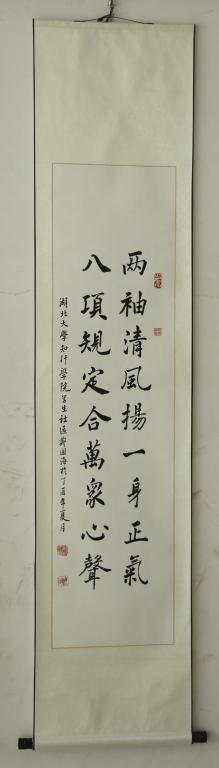 两袖清風揚一身正氣
八項規定合萬衆心聲
湖北大學知行學院学生社區鄭國海於丁酉年夏月